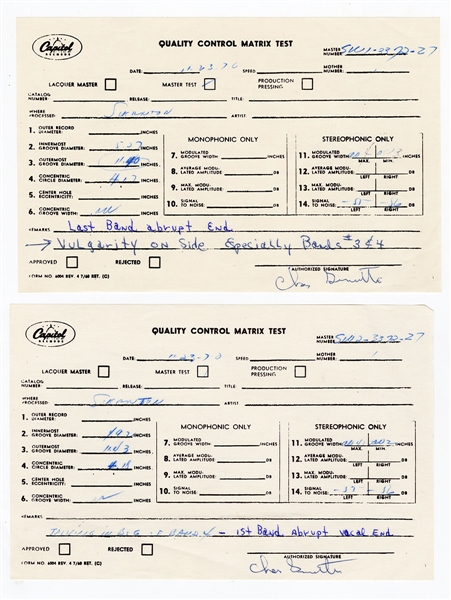 Capitol
RECORDS
QUALITY CONTROL MATRIX TEST
MASTER NUMBER: SW1-3372-27
DATE: 11-23-70 SPEED: MOTHER NUMBER:
LACQUER MASTER MASTER TEST PRODUCTION PRESSING
CATALOG NUMBER: RELEASE: TITLE:
WHERE PROCESSED: SCRANTON ARTIST
1. OUTER RECORD DIAMETER: INCHES
2. INNERMOST GROOVE DIAMETER: INCHES
3. OUTERMOST GROOVE DIAMETER: 11.40 INCHES
4. CONCENTRIC CIRCLE DIAMETER: INCHES
5. CENTER HOLE ECCENTRICITY: INCHES
6. CONCENTRIC GROOVE WIDTH: INCHES
MONOPHONIC ONLY
7. MODULATED GROOVE WIDTH: INCHES
8. AVERAGE MODULATED AMPLITUDE: DB
9. MAX. MODULATED AMPLITUDE: DB
10. SIGNAL TO NOISE: DB
STEREOPHONIC ONLY
11. MODULATED GROOVE WIDTH: INCHES
MAX. MIN.
12. AVERAGE MODULATED AMPLITUDE: DB
LEFT RIGHT
13. MAX. MODULATED AMPLITUDE: DB
LEFT RIGHT
14. SIGNAL TO NOISE: -55 -56 DB
LEFT RIGHT
REMARKS Last Band abrupt End
→ Vulgarity on Side Specially Bands #3 & 4
APPROVED REJECTED
AUTHORIZED SIGNATURE
FORM NO. 6004 REV. 4 7/60 RET. (C)
Capitol
RECORDS
QUALITY CONTROL MATRIX TEST
MASTER NUMBER: SW2-3372-27
DATE: 11-23-70 SPEED: MOTHER NUMBER:
LACQUER MASTER MASTER TEST PRODUCTION PRESSING
CATALOG NUMBER: RELEASE: TITLE:
WHERE PROCESSED: SCRANTON ARTIST
1. OUTER RECORD DIAMETER: INCHES
2. INNERMOST GROOVE DIAMETER: INCHES
3. OUTERMOST GROOVE DIAMETER: INCHES
4. CONCENTRIC CIRCLE DIAMETER: INCHES
5. CENTER HOLE ECCENTRICITY: INCHES
6. CONCENTRIC GROOVE WIDTH: INCHES
MONOPHONIC ONLY
7. MODULATED GROOVE WIDTH: INCHES
8. AVERAGE MODULATED AMPLITUDE: DB
9. MAX. MODULATED AMPLITUDE: DB
10. SIGNAL TO NOISE: DB
STEREOPHONIC ONLY
11. MODULATED GROOVE WIDTH: INCHES
MAX. MIN.
12. AVERAGE MODULATED AMPLITUDE: DB
LEFT RIGHT
13. MAX. MODULATED AMPLITUDE: DB
LEFT RIGHT
14. SIGNAL TO NOISE: -55 -56 DB
LEFT RIGHT
REMARKS
- 1st Band Abrupt vocal End
APPROVED REJECTED
AUTHORIZED SIGNATURE
FORM NO. 6004 REV. 4 7/60 RET. (C)